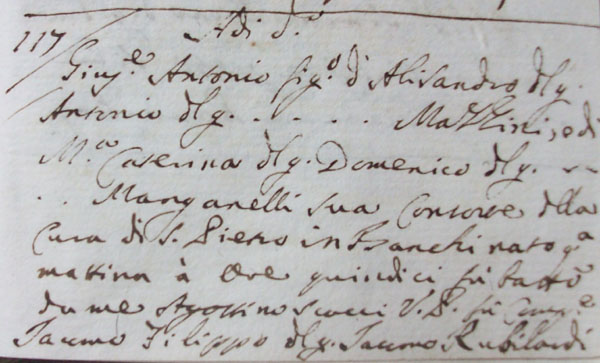 Adi d.º
117 Giuj.e Antonio fig.º d'Alisandro dl q.
Antonio dl q. . . . . . Mazzini, e di
M.a Caterina dl q. Domenico dl q. --
. . Manganelli sua Consorte della
Cura di S. Pietro in Banchi nato q.a
mattina à Ore quindici fù batt.º
da me Agostino Scocci V. P. fù Comp.e
Jacomo Filippo dl q. Jacomo Rubilardi